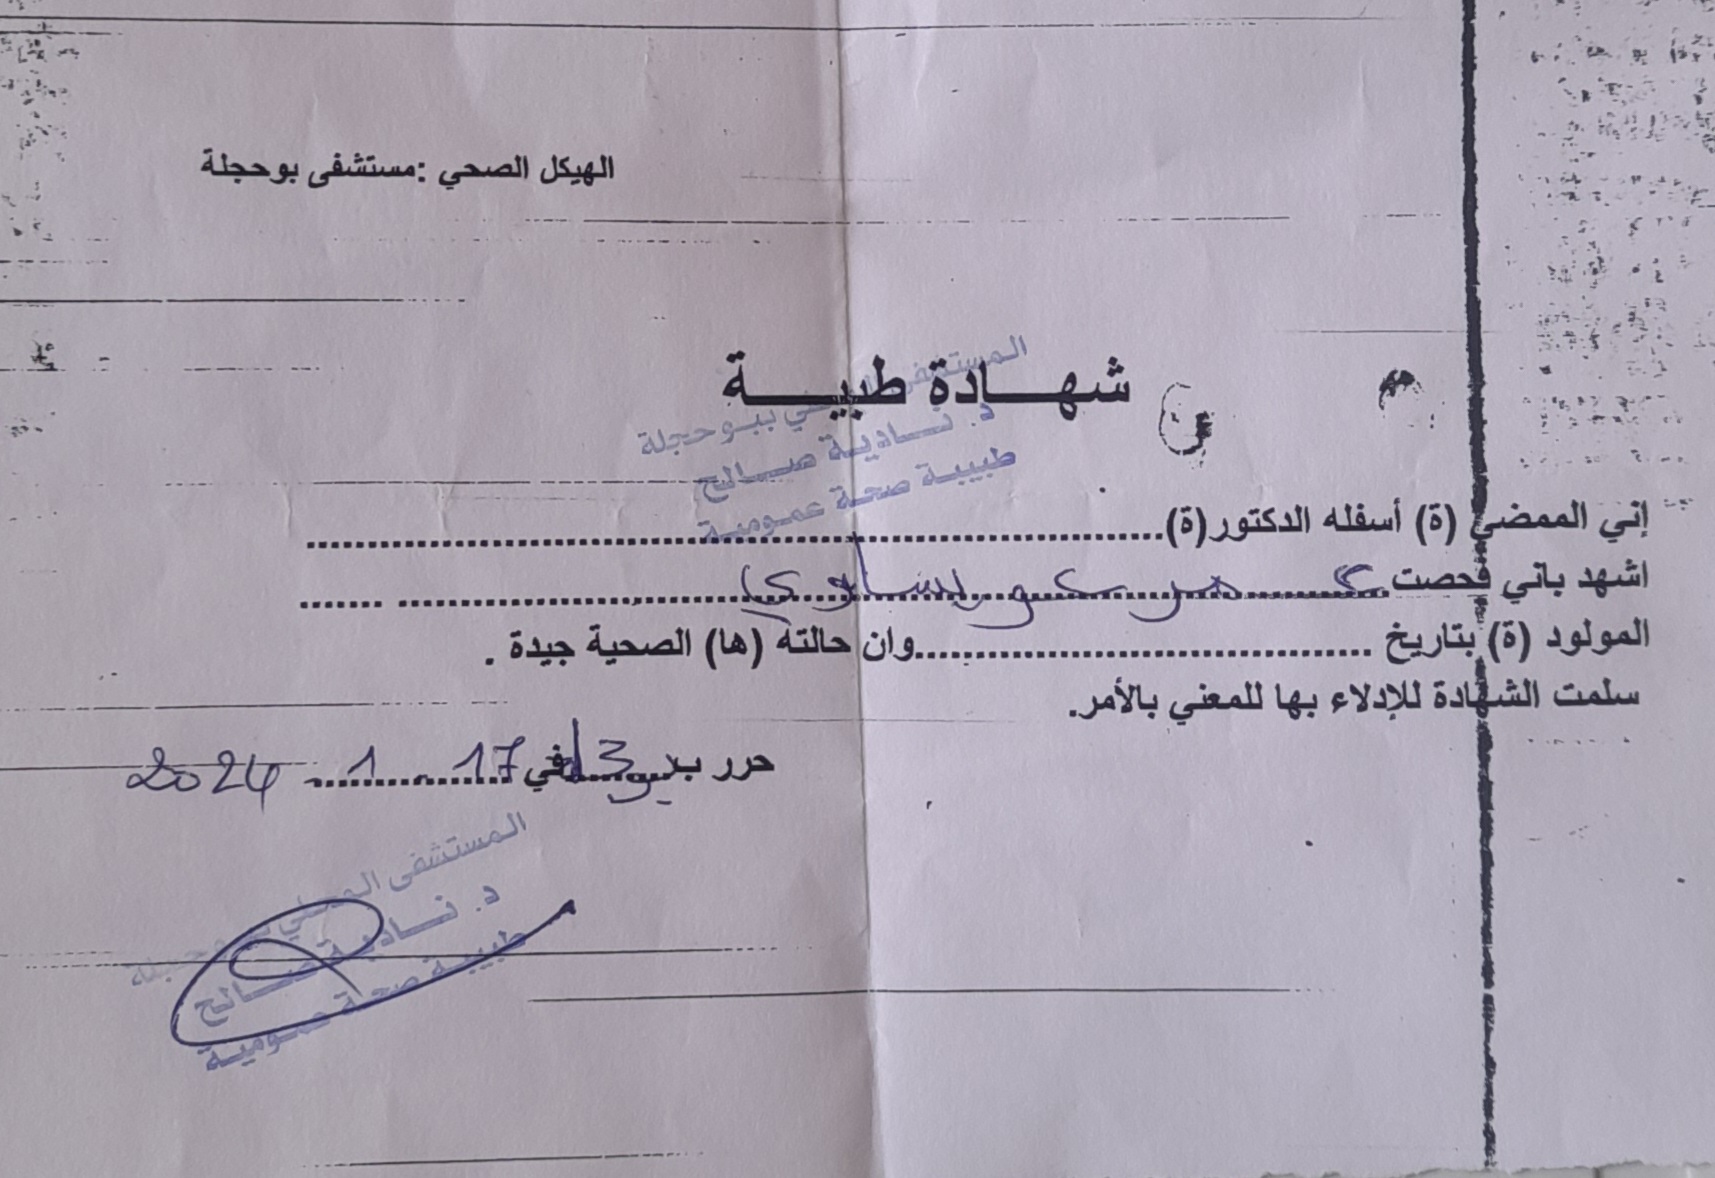 الهيكل الصحي :مستشفى بوحجلة
شهـــادة طبيـــــة
المستشفى المحلي ببوحجلة
د. نـــادية صـــالح
طبيبة صحة عمومية
إني الممضي (ة) أسفله الدكتور(ة)......................................................................
اشهد باني فحصت.......................................................................... .......
المولود (ة) بتاريخ .......................................وان حالته (ها) الصحية جيدة .
سلمت الشهادة للإدلاء بها للمعني بالأمر.
حرر بـ........في 17 . 1 . 2024
المستشفى المحلي ببوحجلة
د. نـــادية صـــالح
طبيبة صحة عمومية